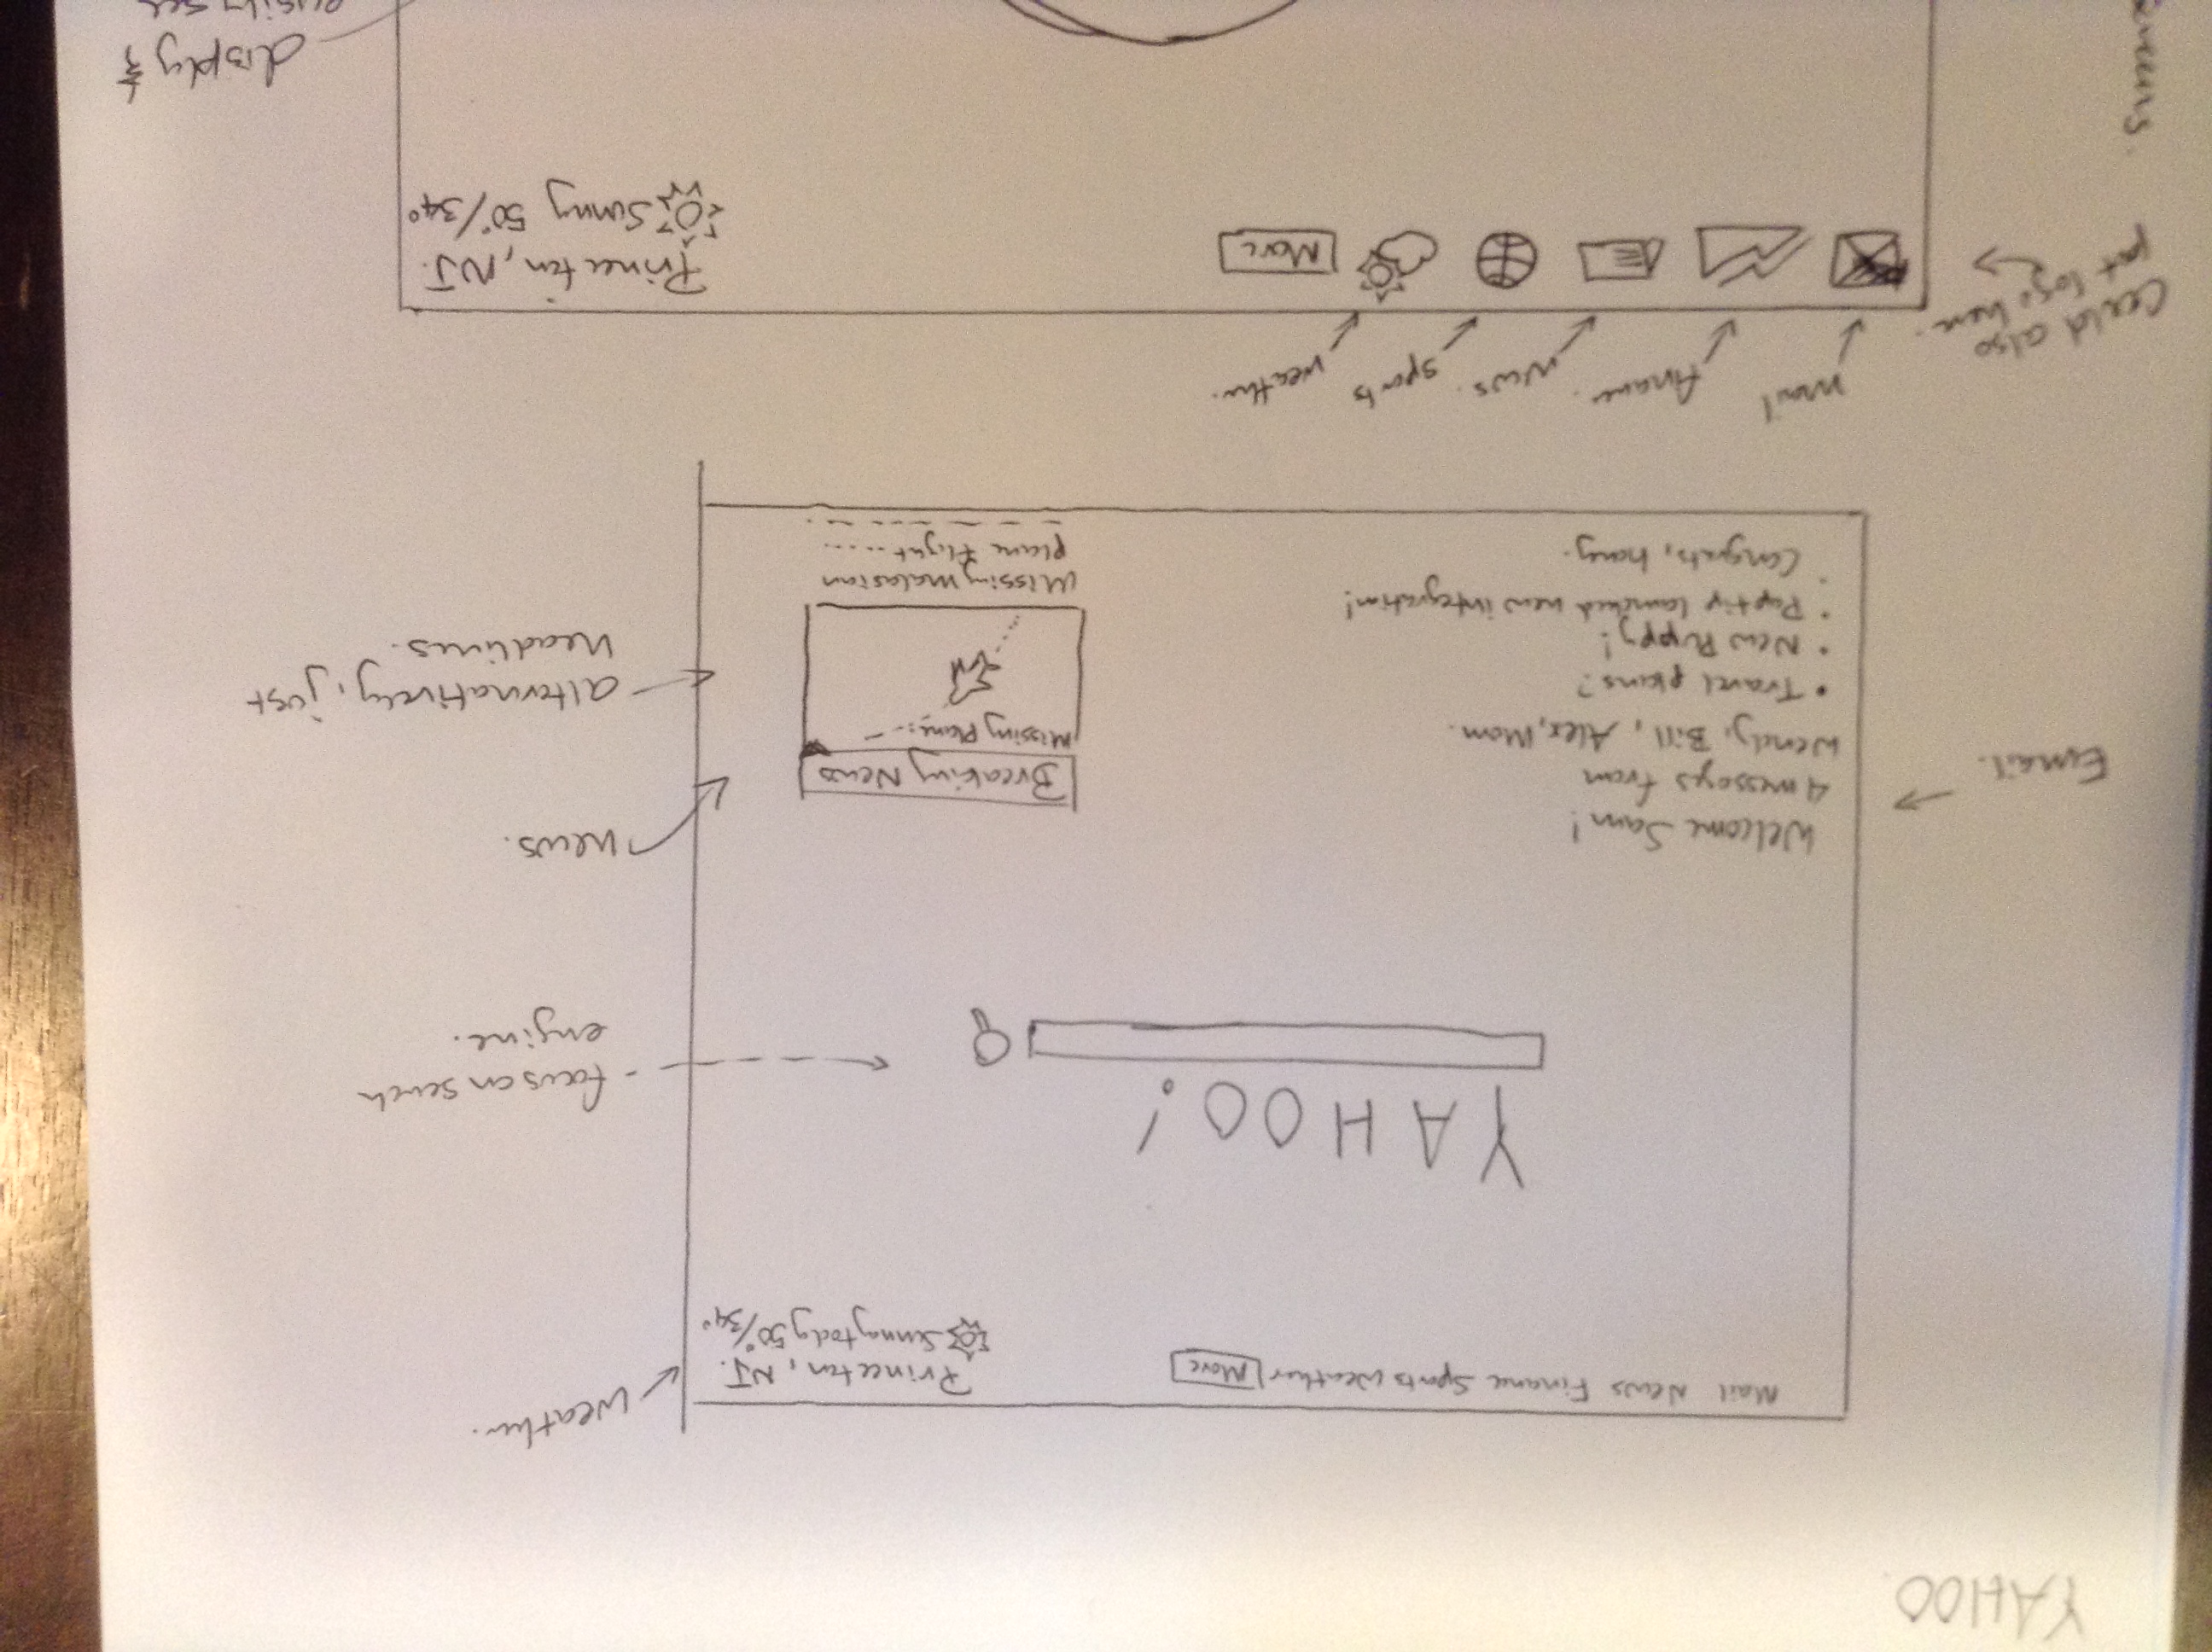 YAHOO.
Mail News Finance Sports Weather More
Princeton, NJ.
Sunny tody 50°/34°
weather.
YAHOO!
focus on search
engine.
Welcome Sam!
4 messages from
Wendy, Bill, Alex, Mom.
• Travel plans?
• New Puppy!
• Poptip launched new integration!
• Congrats, honey.
Email.
Breaking News
Missing Plane:
Missing malasian
plane flight.....
news.
alternatively, just
headlines.
mail
finance.
news.
sports
weather.
Could also
put logo here.
More
Princeton, NJ.
Sunny 50°/34°
display &
easily see